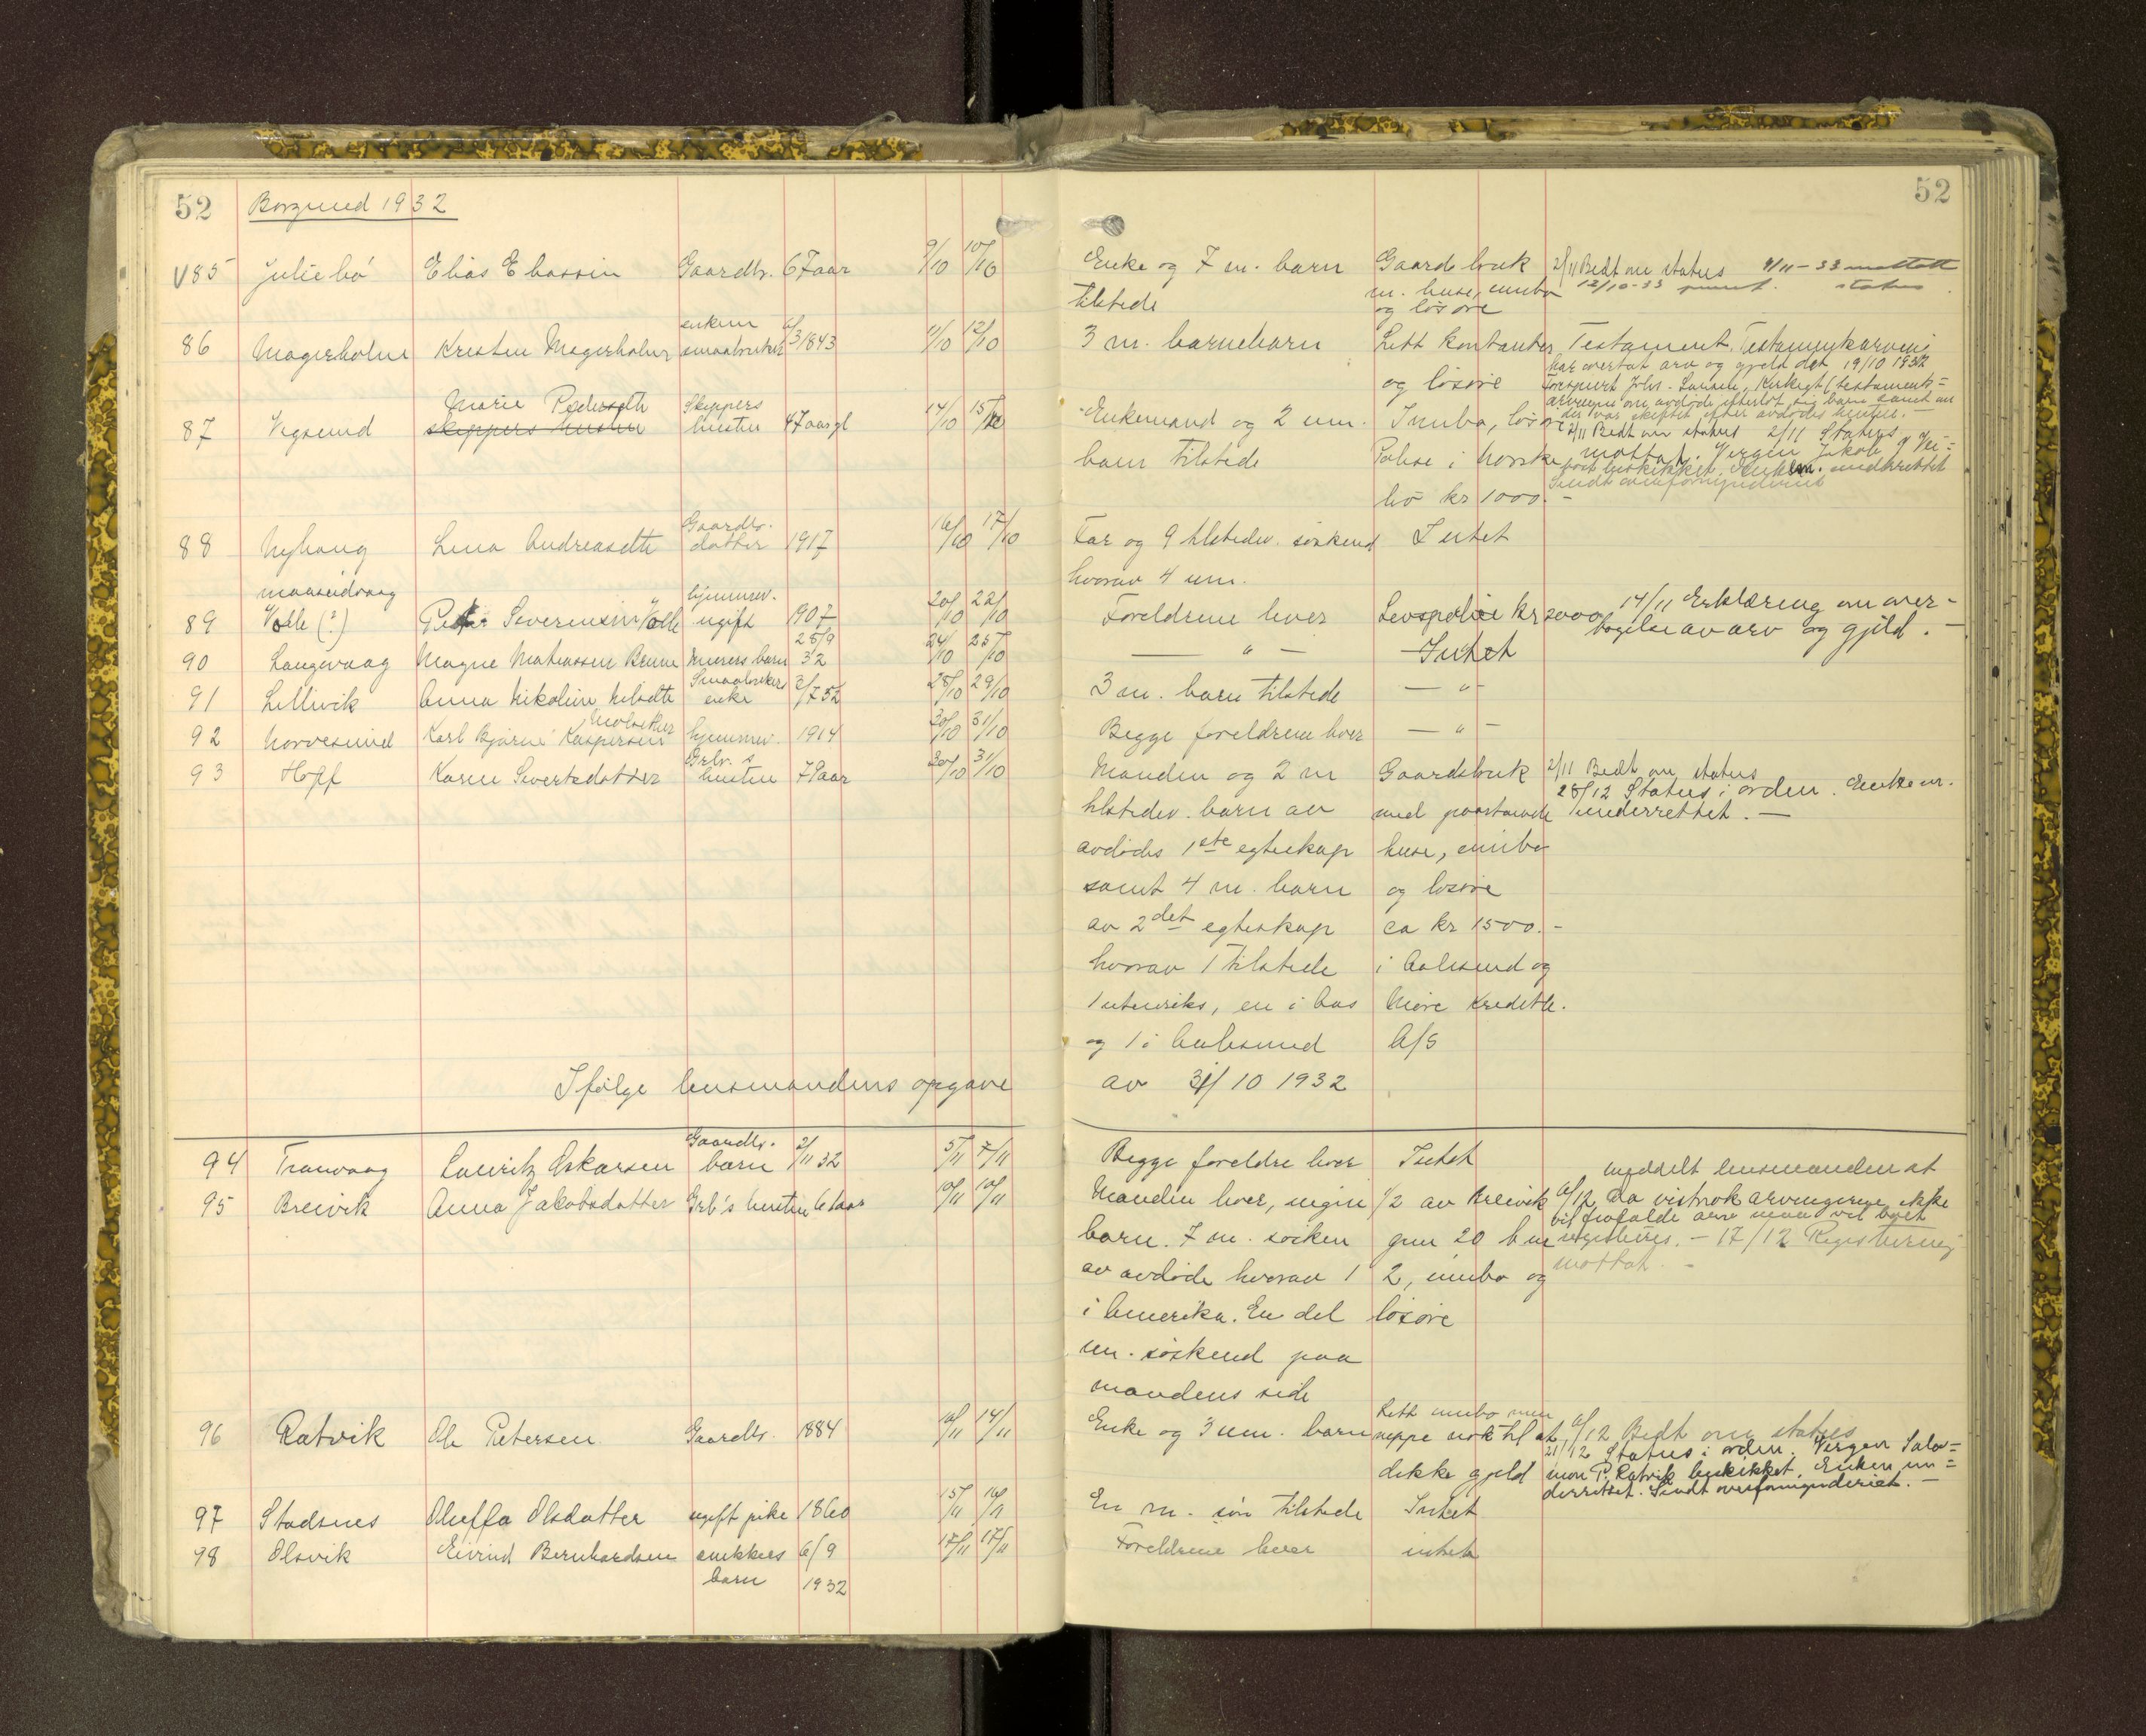 52 Borgund 1932 52
V85 Juliebö Elias Eliassen Gaardbr. 67 aar 9/10 10/10 Enke og 7 m. barn Gaardsbruk 2/11 Bedt om status 4/11-33 mottatt
tilstede m. huse, innbo 12/10-33 status
og lösöre
enkem 6/
86 Magerholm Kristen Magerholm smaabruker 3 1843 11/10 12/10 3 m. barnebarn Litt kontanter Testament. Testamentarving
har overtat arv og gjeld det 19/10 1932
og lösöre Forespurt Johs. Larsen, (testaments=
arvingen om avdöde efterlot sig barn samt om
Marie Pedersdtr Skippers der var skiftet efter avdödes hustru. -
87 Vegsund skippers hustru hustru 47 aar gl 14/10 15/10 Enkemand og 2 um. Innbo, lösöre 2/11 Bedt om status 2/11 Status
barn tilstede Polise i norske mottat. Vergen Jakob Vei-
beskikket. Enkem. underrettet
liv kr 1000.- Sendt overformynderiet
Gaardbr.
88 Nyhaug Lina Andreasdtr datter 1917 16/10 17/10 Far og 9 tilstedev. söskend Intet
hvorav 4 um.
maaseidvaag hjemmev.
89 Valle (?) Peter Severinsen Valle ugift 1907 20/10 22/10 Foreldrene lever Livspolise kr 2000 14/11 Erklæring om over-
tagelse av arv og gjeld. -
25/9
90 Langevaag Magne Mathiassen Brune Murers barn 32 24/10 25/10 — " — Intet
Smaabrukers 3/
91 Lillevik Anna Nikoline Nilsdtr enke 7 52 28/10 29/10 3 m. barn tilstede — " —
Molsæther
92 Norvesund Karl Bjarne Kaspersen hjemmev. 1914 30/10 31/10 Begge foreldrene lever — " —
Grbr. s
93 Hoff Karen Sivertsdatter hustru 79 aar 30/10 31/10 Manden og 2 m Gaardsbruk 2/11 Bedt om status
28/12 Status i orden. Enkem.
tilstedev. barn av med paastaaende underrettet. -
avdödes 1ste egteskap huse, innbo
samt 4 m. barn og lösöre
av 2det egteskap ca kr 1500.-
hvorav 1 tilstede i Aalesund og
1 utenriks, en i Aas Möre Kreditb.
og 1 i Aalesund A/S
Ifölge lensmandens opgave av 31/10 1932
Gaardbr.
94 Tranvaag Lauritz Oskarsen barn 2/11 32 5/11 7/11 Begge foreldre lever Intet meddelt lensmanden at
95 Breivik Anna Jakobsdatter Grb's hustru 61 aar 10/11 10/11 Manden lever, ingen 1/2 av Breivik 6/12 da vistnok arvingerne ikke
vil frafalde arv maa vel boet
barn. 7 m. sösken gnr 20 bnr registreres. - 17/12 Registrering
mottat. -
av avdöde hvorav 1 2, innbo og
i Amerika. En del lösöre
um. söskend paa
mandens side
Litt innbo men
96 Ratvik Ole Petersen Gaardbr. 1884 10/11 14/11 Enke og 3 um. barn neppe nok til at 6/12 Bedt om status
21/12 Status i orden. Vergen Salo=
dekke gjeld mon P. Ratvik beskikket. Enken un=
derrettet. Sendt overformynderiet. -
97 Stadsnes Oluffa Olsdatter ugift pike 1860 15/11 16/11 En m. sön tilstede Intet
98 Olsvik Eivind Bernhardsen snekkers 6/9 17/11 17/11 Foreldrene lever intet
barn 1932